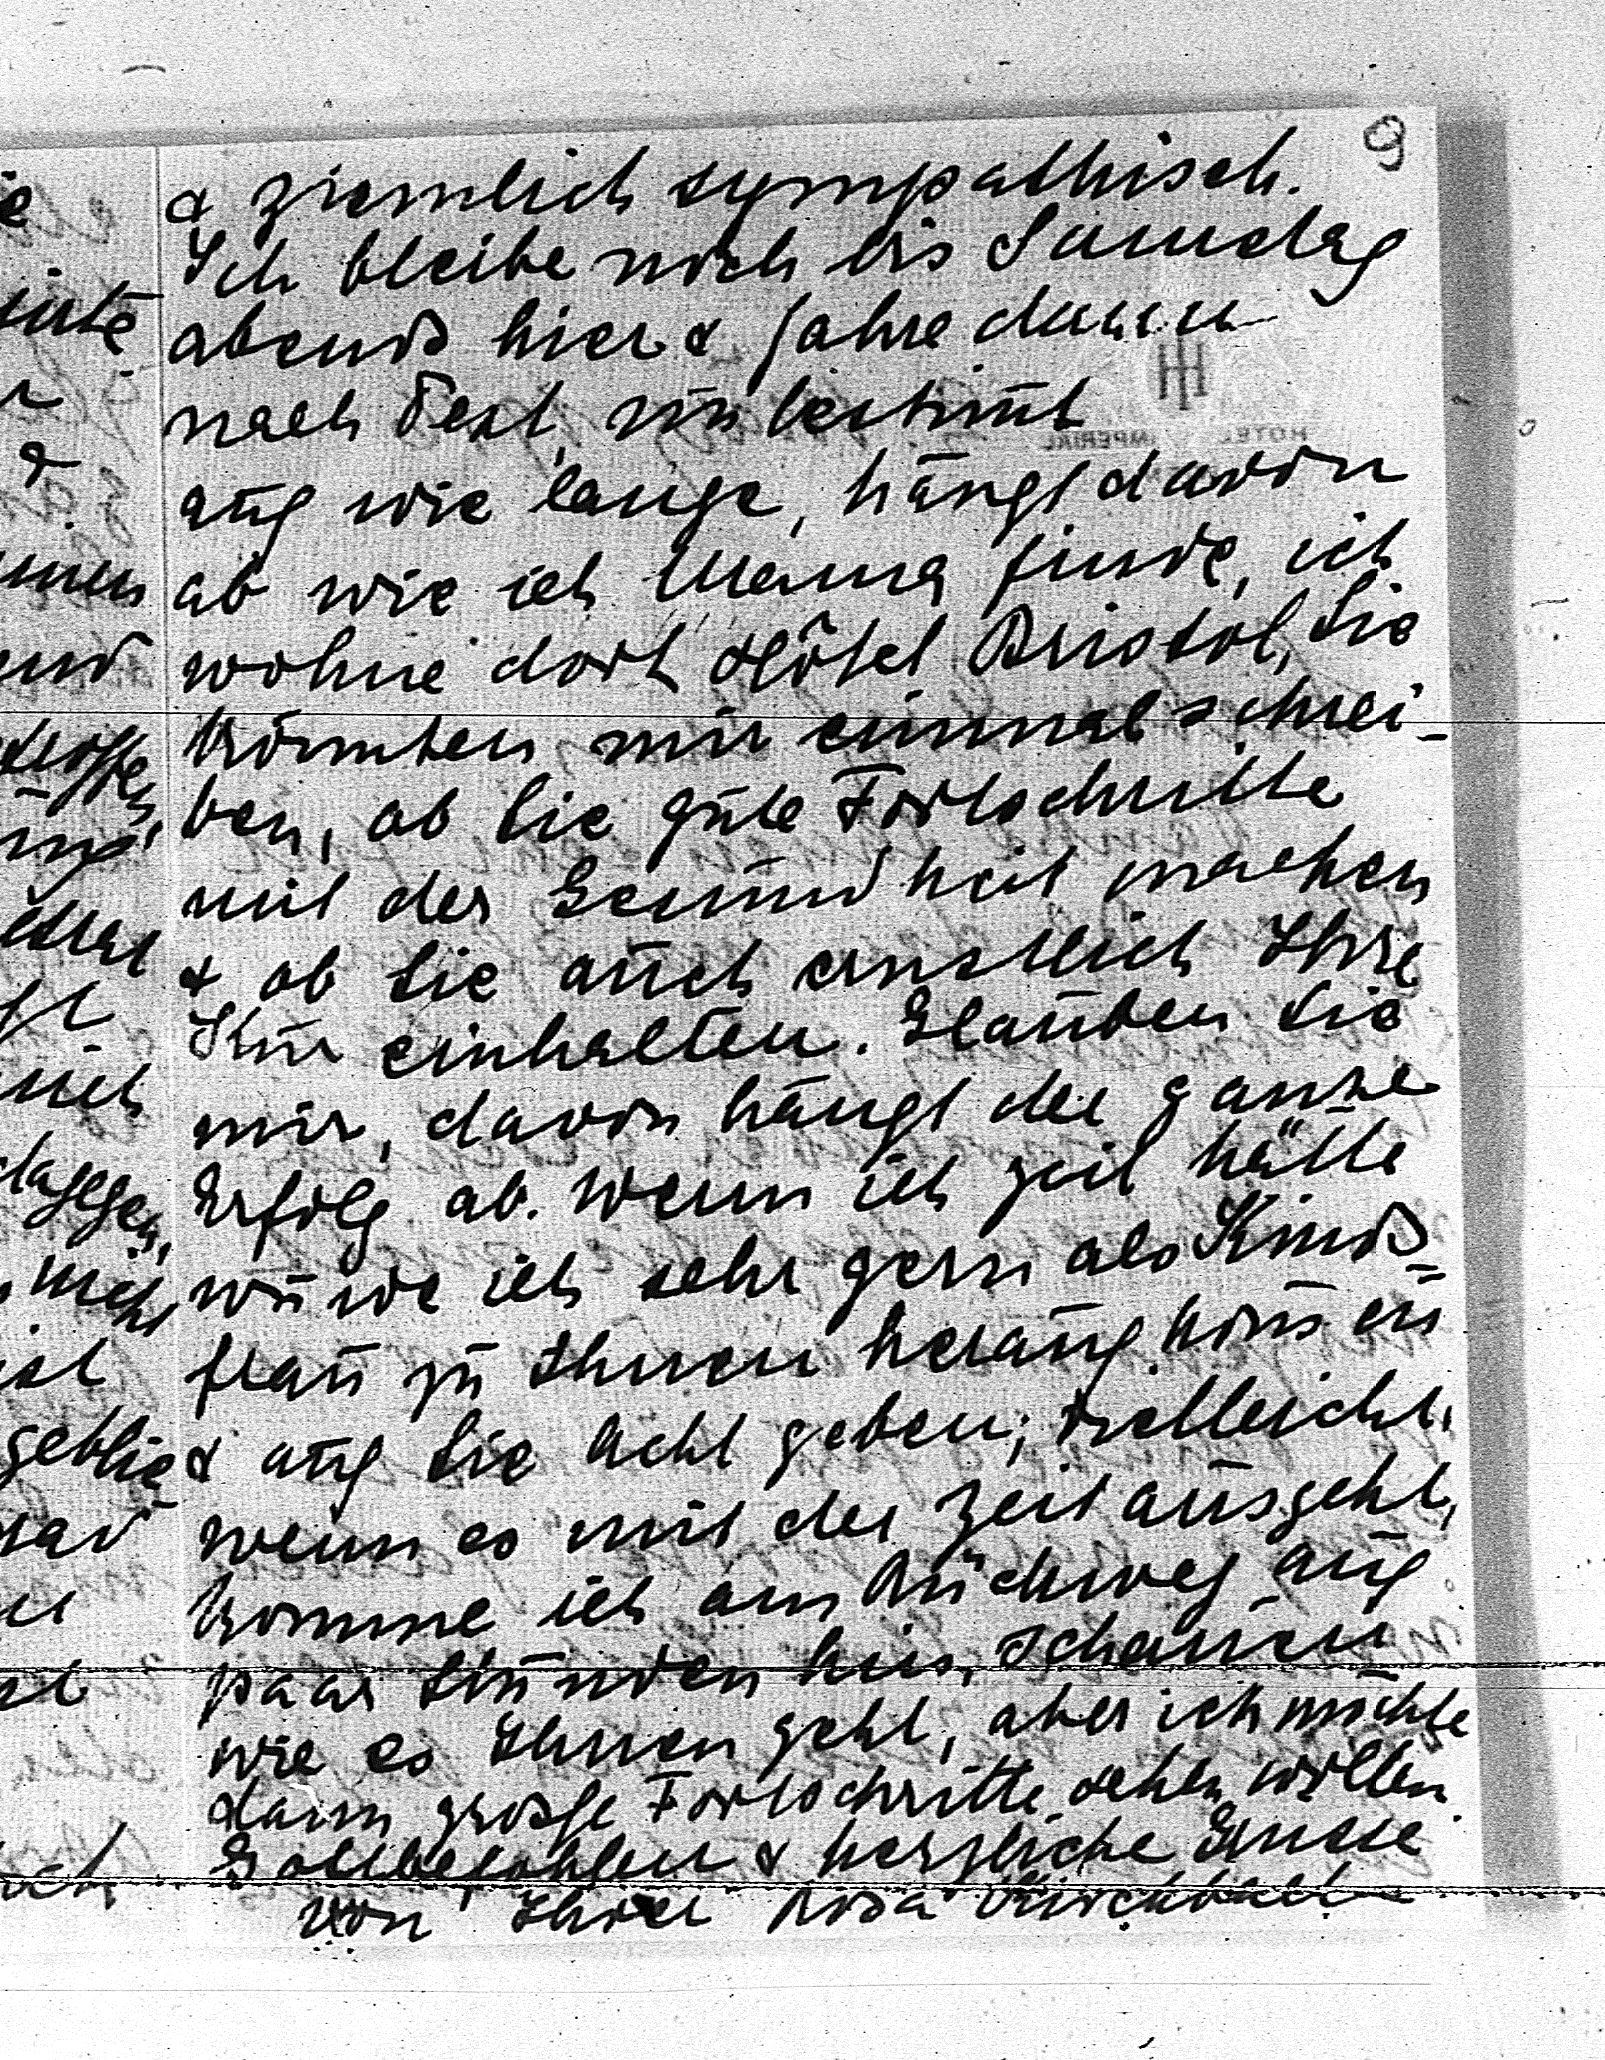 9
& ziemlich sympathisch.
Ich bleibe noch bis Samstag
abends hier & fahre dann
nach Pest, unbestimt
auf wie lange, hängt davon
ab wie ich Mama finde, ich
wohne dort Hôtel Bristol, Sie
könnten mir einmal schrei-
ben, ob Sie gute Fortschritte
mit der Gesundheit machen
& ob Sie auch ernstlich Ihre
Kur einhalten. Glauben Sie
mir, davon hängt der ganze
Erfolg ab. Wenn ich Zeit hätte
würde ich sehr gern als Kinds-
frau zu Ihnen herauf kom̄en
& auf Sie Acht geben; vielleicht,
wenn es mit der Zeit ausgeht,
komme ich am Rückweg auf
paar Stunden hin, schauen
wie es Ihnen geht, aber ich möchte
dann grosse Fortschritte sehen wollen.
Gottbefohlen & herzliche Grüsse
von Ihrer Rosa
HOTEL IMPERIAL